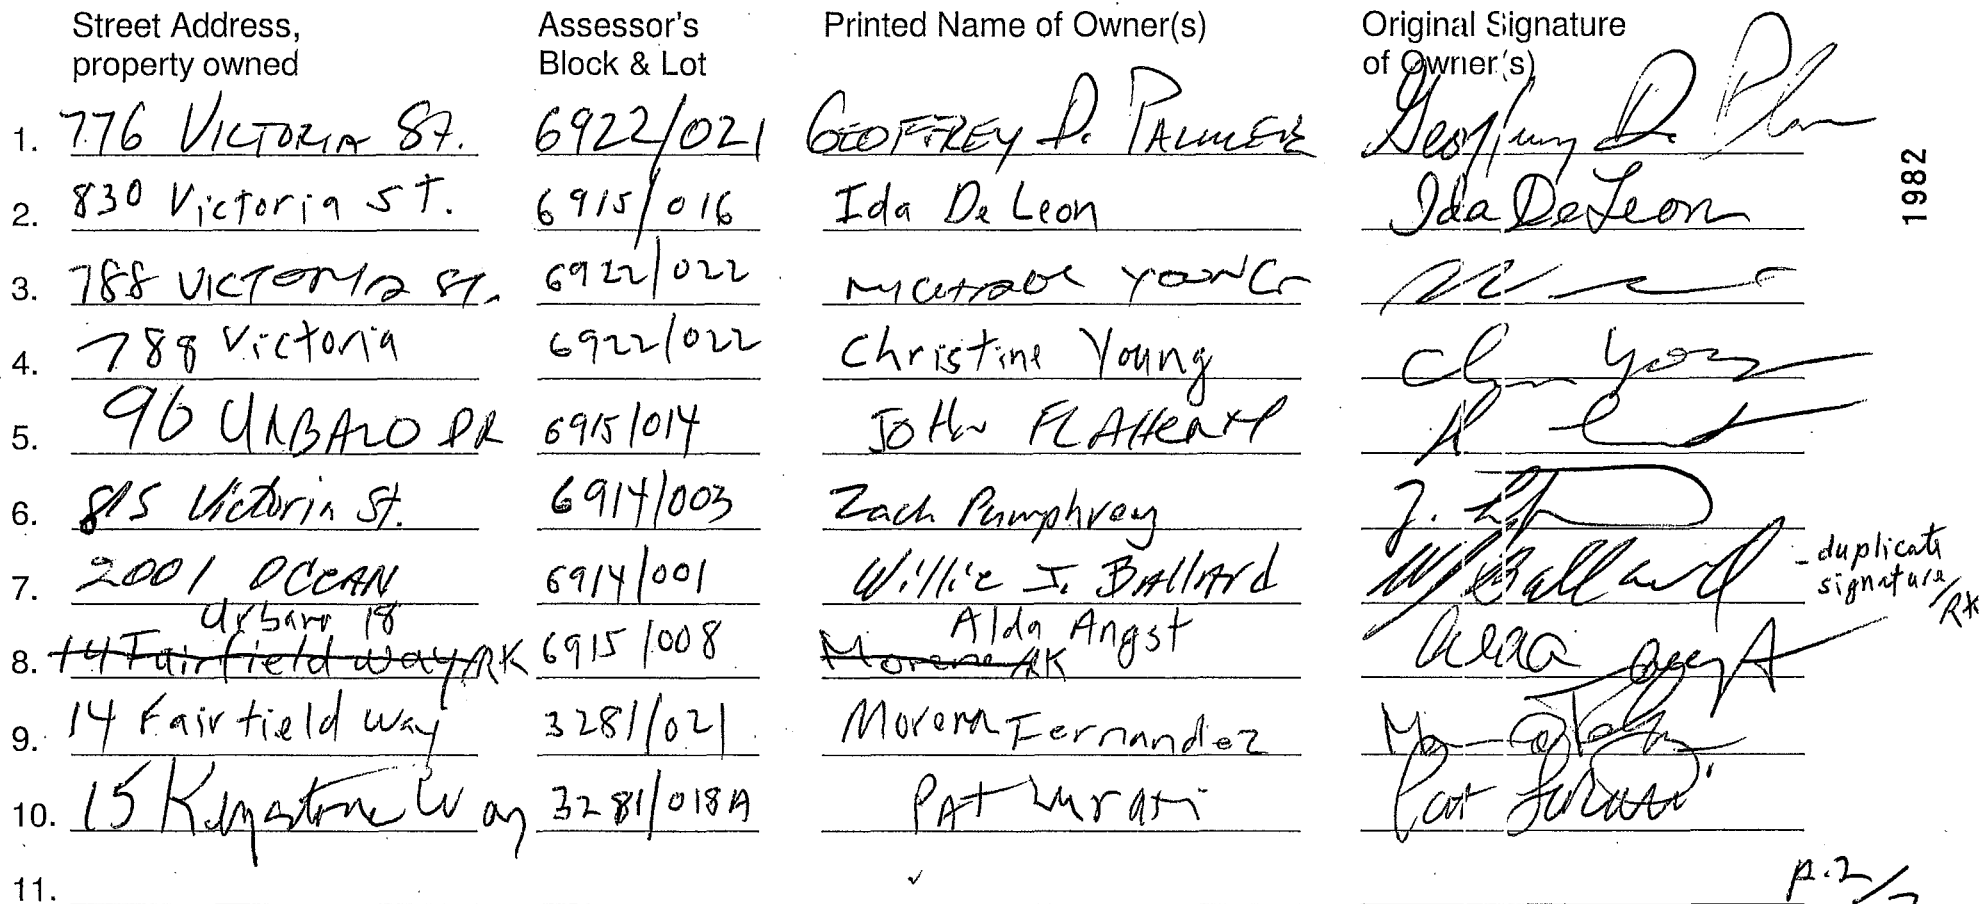 Street Address, Assessor's Printed Name of Owner(s) Original Signature
property owned Block & Lot of Owner(s)
1. 776 VICTORIA ST. 6922/021 GEOFFREY D. PALMER Geoffrey D.
1982
2. 830 Victoria ST. 6915/016 Ida De Leon Ida DeLeon
3. 788 VICTORIA ST. 6922/022 YOUNG
4. 788 Victoria 6922/022 Christine Young
5. 90 URBANO DR 6915/014 JOHN FLAHERTY
6. 815 Victoria St. 6914/003 Zach Pumphrey
7. 2001 OCEAN 6914/001 Willie J. BAllArd WJ Ballard - duplicate
signature/RK
Urbano 18 Alda Angst
8. 14 Fairfield Way/RK 6915/008 Morena/RK Alda Angst
9. 14 Fairfield Way 3281/021 Morena Fernandez
10. 15 Keystone Way 3281/018A PAT Lurasi Pat
11.
p.2/